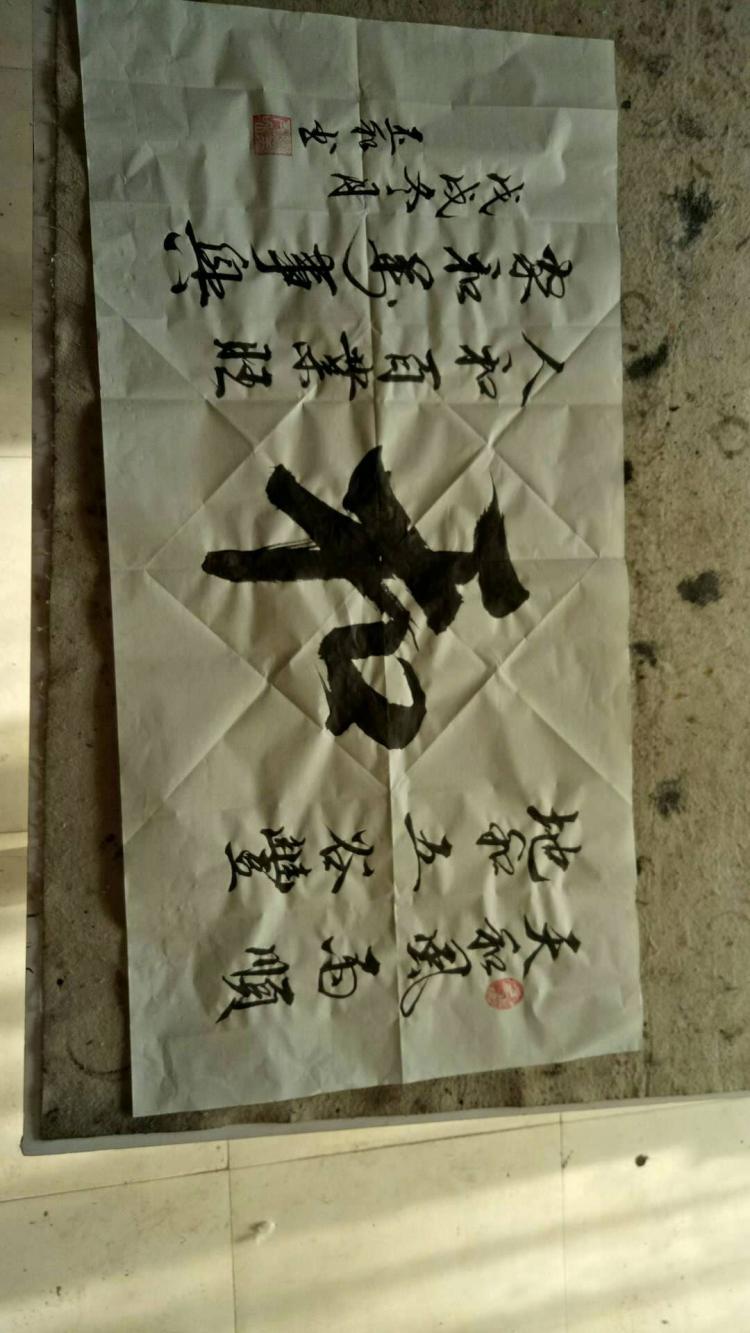 天和風雨順
地和五谷豐
和
人和百業旺
家和萬事興
戊戌冬月
玉和书